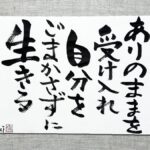 ありのままを
受け入れ
自分を
ごまかさずに
生きる